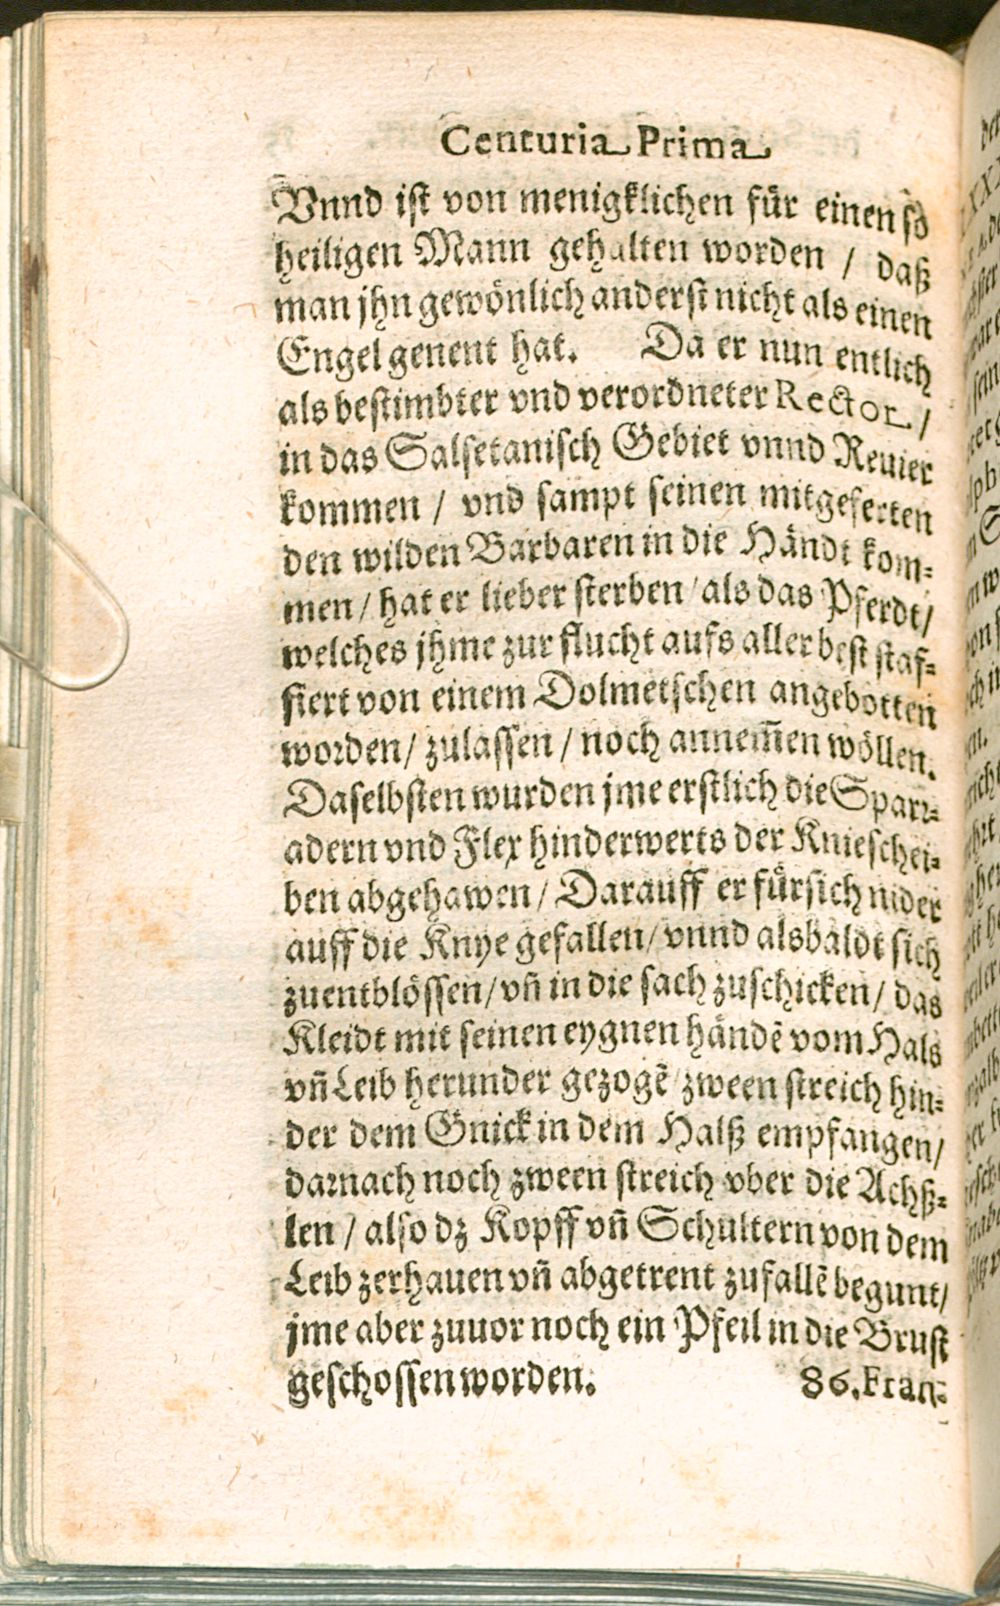 Centuria Prima
Vnnd ist von menigklichen für einen so
heiligen Mann gehalten worden / daß
man jhn gewönlich anderst nicht als einen
Engel genent hat. Da er nun entlich
als bestimbter vnd verordneter Rector /
in das Salsetanisch Gebiet vnnd Reuier
kommen / vnd sampt seinen mitgeferten
den wilden Barbaren in die Händt kom⸗
men / hat er lieber sterben / als das Pferdt /
welches jhme zur flucht aufs aller best staf⸗
fiert von einem Dolmetschen angebotten
worden / zulassen / noch annem̃en wöllen.
Daselbsten wurden jme erstlich die Sparr⸗
adern vnd Flex hinderwerts der Knieschei⸗
ben abgehawen / Darauff er fürsich nider
auff die Knye gefallen / vnnd alsbaldt sich
zuentblössen / vñ in die sach zuschicken / das
Kleidt mit seinen eygnen händẽ vom Hals
vñ Leib herunder gezogẽ / zween streich hin⸗
der dem Gnick in dem Halß empfangen /
darnach noch zween streich vber die Achß⸗
len / also dz Kopff vñ Schultern von dem
Leib zerhauen vñ abgetrent zufallẽ begunt /
jme aber zuuor noch ein Pfeil in die Brust
geschossen worden. 86. Fran⸗